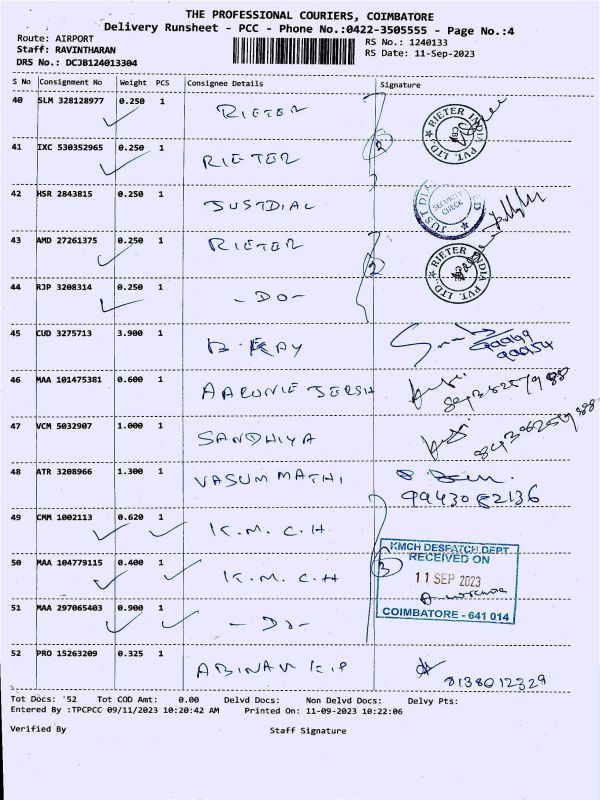 THE PROFESSIONAL COURIERS, COIMBATORE
Delivery Runsheet - PCC - Phone No.:0422-3505555 - Page No.:4
Route: AIRPORT
RS No.: 1240133
Staff: RAVINTHARAN
RS Date: 11-Sep-2023
DRS No.: DCJB124013304
S No Consignment No Weight PCS Consignee Details Signature
40 SLM 328128977 0.250 1 RIETER
RIETER INDIA PVT. LTD.
41 IXC 530352965 0.250 1 RIETER
2
42 HSR 2843815 0.250 1 JUSTDIAL
SECURITY CHECK
43 AMD 27261375 0.250 1 RIETER
RIETER INDIA PVT. LTD.
44 RJP 3208314 0.250 1 -DO-
2
45 CUD 3275713 3.900 1
46 MAA 101475381 0.600 1
47 VCM 5032907 1.000 1 SANDHIYA
48 ATR 3208966 1.300 1 VASUMMATHI
9943082136
49 CMM 1002113 0.620 1 K.M.C.H
50 MAA 104779115 0.400 1 K.M.C.H
3
KMCH DESPATCH DEPT
RECEIVED ON
11 SEP 2023
COIMBATORE - 641 014
51 MAA 297065403 0.900 1 -DO-
52 PRO 15263209 0.325 1 8138012329
Tot Docs: 52 Tot COD Amt: 0.00 Delvd Docs: Non Delvd Docs: Delvy Pts:
Entered By :TPCPCC 09/11/2023 10:20:42 AM Printed On: 11-09-2023 10:22:06
Verified By Staff Signature